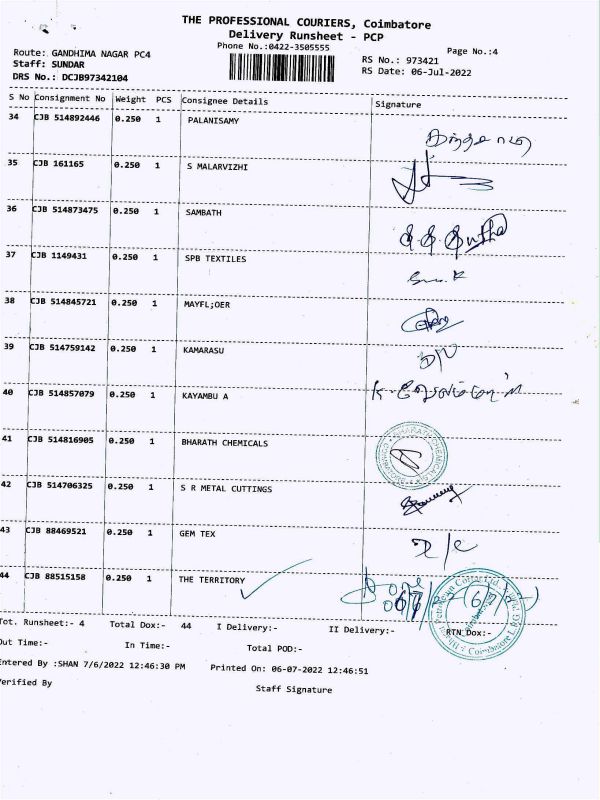 THE PROFESSIONAL COURIERS, Coimbatore
Delivery Runsheet - PCP
Phone No.:0422-3505555
Page No.:4
Route: GANDHIMA NAGAR PC4
Staff: SUNDAR
DRS No.: DCJB97342104
RS No.: 973421
RS Date: 06-Jul-2022
S No Consignment No Weight PCS Consignee Details Signature
34 CJB 514892446 0.250 1 PALANISAMY
35 CJB 161165 0.250 1 S MALARVIZHI
36 CJB 514873475 0.250 1 SAMBATH
37 CJB 1149431 0.250 1 SPB TEXTILES
38 CJB 514845721 0.250 1 MAYFL;OER
39 CJB 514759142 0.250 1 KAMARASU
40 CJB 514857079 0.250 1 KAYAMBU A
41 CJB 514816905 0.250 1 BHARATH CHEMICALS
BHARATH CHEMICALS
42 CJB 514706325 0.250 1 S R METAL CUTTINGS
43 CJB 88469521 0.250 1 GEM TEX
44 CJB 88515158 0.250 1 THE TERRITORY
Tot. Runsheet:- 4 Total Dox:- 44 I Delivery:- II Delivery:- RTN Dox:-
Out Time:- In Time:- Total POD:-
Entered By :SHAN 7/6/2022 12:46:30 PM Printed On: 06-07-2022 12:46:51
Verified By Staff Signature